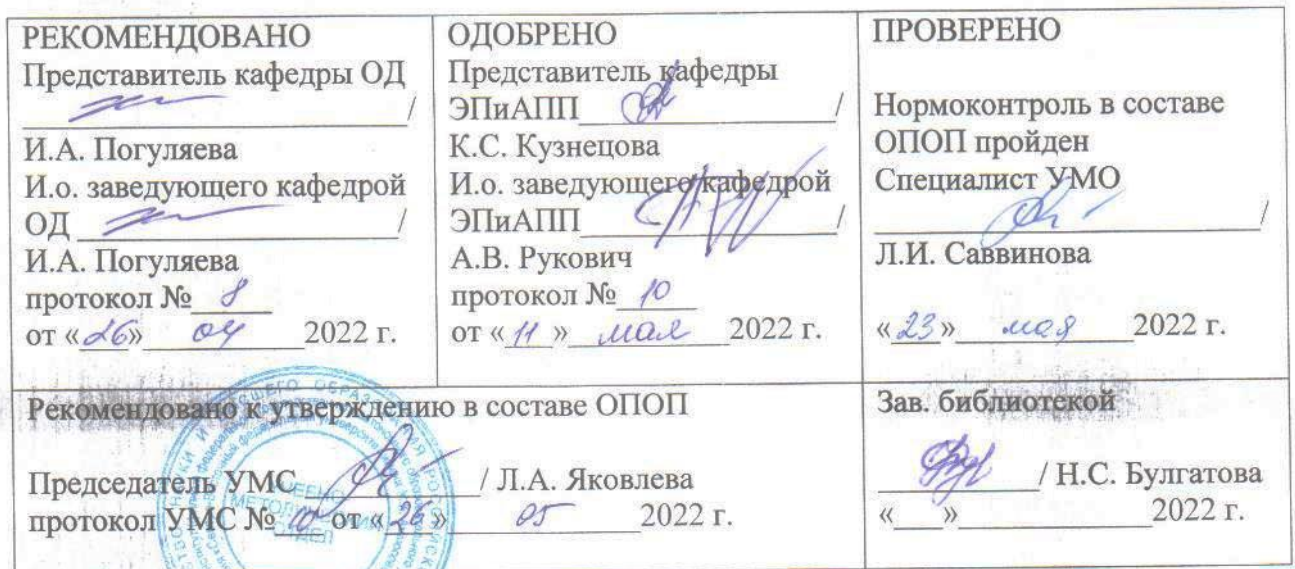 РЕКОМЕНДОВАНО
Представитель кафедры ОД
/
И.А. Погуляева
И.о. заведующего кафедрой
ОД /
И.А. Погуляева
протокол № 8
от «26» 04 2022 г.
ОДОБРЕНО
Представитель кафедры
ЭПиАПП /
К.С. Кузнецова
И.о. заведующего кафедрой
ЭПиАПП /
А.В. Рукович
протокол № 10
от «11» мая 2022 г.
ПРОВЕРЕНО
Нормоконтроль в составе
ОПОП пройден
Специалист УМО
/
Л.И. Саввинова
«23» мая 2022 г.
Рекомендовано к утверждению в составе ОПОП
Председатель УМС / Л.А. Яковлева
протокол УМС № 10 от «26» 05 2022 г.
Зав. библиотекой
/ Н.С. Булгатова
«___»___ 2022 г.